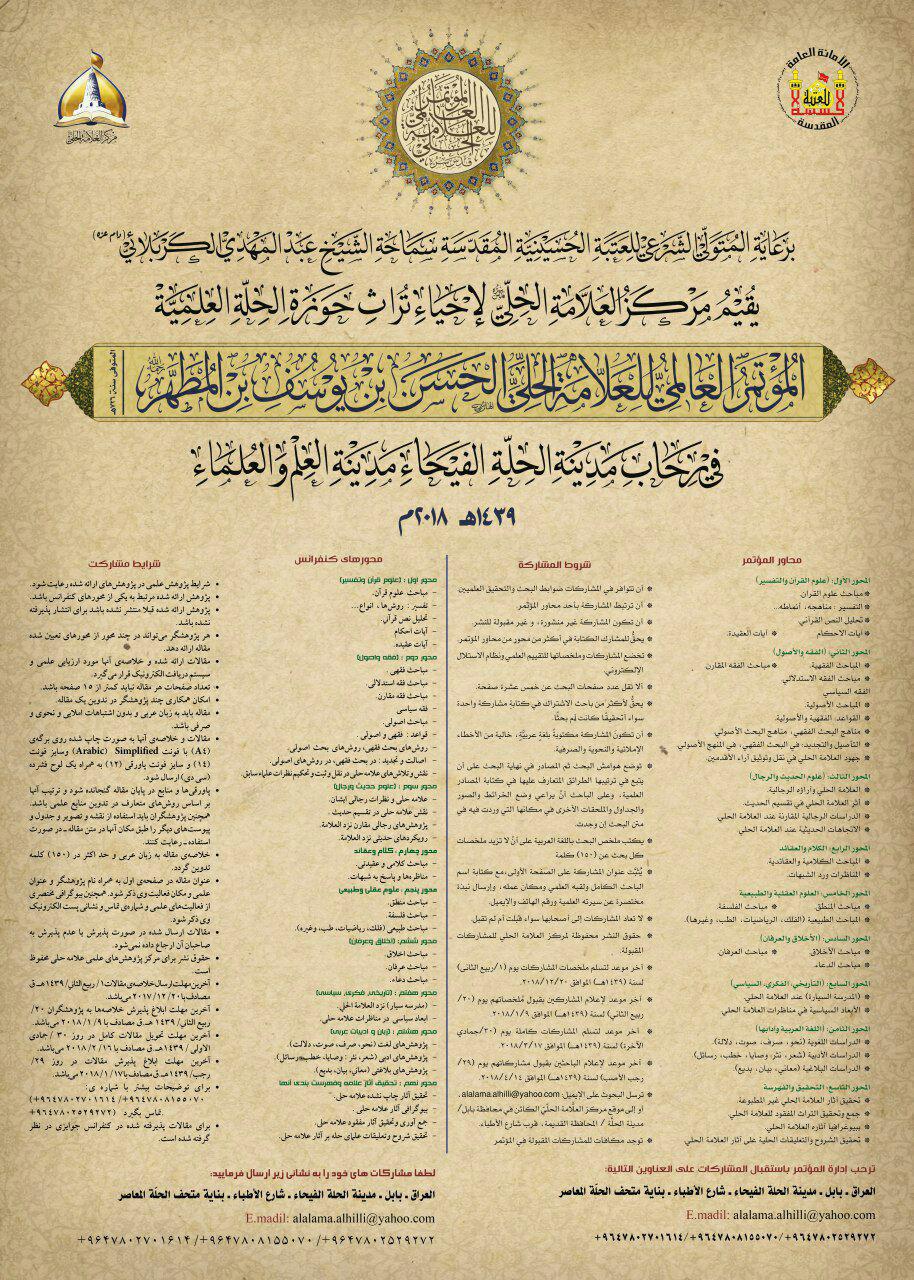 الأمانة العامة
للعتبة
الحسينية
المقدسة
المؤتمر
العالمي
للعلامة
الحلي
قدس سره
مركز العلامة الحلي
بِرِعَايَةِ المُتَوَلِّي الشَّرعِيِّ لِلعَتَبَةِ الحُسَينِيَّةِ المُقَدَّسَةِ سَمَاحَةِ الشَّيخِ عَبدِ المَهدِيِّ الكَربَلَائيِّ (دام عزه)
يُقِيمُ مَركَزُ العَلَّامَةِ الحِلِّيِّ لإحيَاءِ تُرَاثِ حَوزَةِ الحِلَّةِ العِلمِيَّةِ
المُؤتَمَرُ العَالَمِيُّ لِلعَلَّامَةِ الحِلِّيِّ الحَسَنِ بنِ يُوسُفَ بنِ المُطَهَّرِ
المتوفى سنة ٧٢٦هـ
في رِحَابِ مَدِينَةِ الحِلَّةِ الفَيحَاءِ مَدِينَةِ العِلمِ وَالعُلَمَاءِ
١٤٣٩هـ ٢٠١٨م
محاور المؤتمر
المحور الأول: (علوم القرآن والتفسير)
* مباحث علوم القرآن.
* التفسير : مناهجه، أنماطه...
* تحليل النص القرآني.
* آيات الأحكام * آيات العقيدة.
المحور الثاني: (الفقه والأصول)
* المباحث الفقهية. * مباحث الفقه المقارن
* مباحث الفقه الاستدلالي
الفقه السياسي
* المباحث الأصولية.
* القواعد، الفقهية والأصولية.
* مناهج البحث الفقهي، مناهج البحث الأصولي
* التأصيل والتجديد: في البحث الفقهي، في المنهج الأصولي
* جهود العلامة الحلي في نقل وتوثيق آراء الأقدمين.
المحور الثالث: (علوم الحديث والرجال)
* العلامة الحلي وآراؤه الرجالية.
* أثر العلامة الحلي في تقسيم الحديث.
* الدراسات الرجالية المقارنة عند العلامة الحلي
* الاتجاهات الحديثية عند العلامة الحلي
المحور الرابع: الكلام والعقائد
* المباحث الكلامية والعقائدية.
* المناظرات ورد الشبهات.
المحور الخامس: العلوم العقلية والطبيعية
* مباحث المنطق * مباحث الفلسفة
* المباحث الطبيعية (الفلك، الرياضيات، الطب، وغيرها).
المحور السادس: (الأخلاق والعرفان)
* مباحث الأخلاق. * مباحث العرفان.
* مباحث الدعاء.
المحور السابع: (التاريخي، الفكري، السياسي)
* (المدرسة السيارة) عند العلامة الحلي.
* الأبعاد السياسية في مناظرات العلامة الحلي.
المحور الثامن: (اللغة العربية وآدابها)
* الدراسات اللغوية (نحو، صرف، صوت، دلالة).
* الدراسات الأدبية (شعر، نثر، وصايا، خطب، رسائل).
* الدراسات البلاغية (معاني، بيان، بديع).
المحور التاسع: التحقيق والفهرسة
* تحقيق آثار العلامة الحلي غير المطبوعة.
* جمع وتحقيق التراث المفقود للعلامة الحلي.
* ببيوغرافيا آثاره العلامة الحلي.
* تحقيق الشروح والتعليقات الحلية على آثار العلامة الحلي
شروط المشاركة
* أن تتوافر في المشاركات ضوابط البحث والتحقيق العلميين
* أن ترتبط المشاركة بأحد محاور المؤتمر.
* أن تكون المشاركة غير منشورة، و غير مقبولة للنشر.
* يحقُّ للمشارك الكتابة في أكثر من محور من محاور المؤتمر.
* تخضع المشاركات وملخصاتها للتقييم العلمي ونظام الاستلال
الإلكتروني.
* ألا تقل عدد صفحات البحث عن خمس عشرة صفحة.
* يحقُّ لأكثر من باحث الاشتراك في كتابة مشاركة واحدة
سواء أتحقيقًا كانت لم بحثًا.
* أن تكون المشاركة مكتوبةً بلغة عربيّة، خالية من الأخطاء
الإملائية والنحوية والصرفية.
* توضع هوامش البحث ثم المصادر في نهاية البحث على أن
يتبع في ترتيبها الطرائق المتعارف عليها في كتابة المصادر
العلمية، وعلى الباحث أنْ يراعي وضع الخرائط والصور
والجداول والملحقات الأخرى في مكانها التي وردت فيه في
متن البحث إن وجدت.
* يكتب ملخص البحث باللغة العربية على أنْ لا تزيد ملخصات
كل بحث عن (١٥٠) كلمة
* يُثبَّت عنوان المشاركة على الصفحة الأولى،مع كتابة اسم
الباحث الكامل ولقبه العلمي ومكان عمله، وإرسال نبذة
مختصرة عن سيرته العلمية ورقم الهاتف والإيميل.
* لا تعاد المشاركات إلى أصحابها سواء قبلت أم لم تقبل.
* حقوق النشر محفوظة لمركز العلامة الحلي للمشاركات
المقبولة.
* آخر موعد لتسلم ملخصات المشاركات يوم (١/ربيع الثاني)
لسنة (١٤٣٩هـ) الموافق ٢٠١٨/١٢/٢٠.
* آخر موعد لإعلام المشاركين بقبول ملخصاتهم يوم (٢٠/
ربيع الثاني) لسنة (١٤٣٩هـ) الموافق ٢٠١٨/١/٩.
* آخر موعد لتسلم المشاركات كاملة يوم (٣٠/جمادي
الآخرة) لسنة (١٤٣٩هـ) الموافق ٢٠١٨/٣/١٧.
* آخر موعد لإعلام الباحثين بقبول مشاركاتهم يوم (٢٩/
رجب الأصب) لسنة (١٤٣٩هـ) الموافق ٢٠١٨/٤/١٤.
* ترسل البحوث على الإيميل: alalama.alhilli@yahoo.com.
أو إلى موقع مركز العلامة الحلّيّ الكائن في محافظة بابل/
مدينة الحلّة / المحافظة القديمة، قرب شارع الأطباء.
* توجد مكافآت للمشاركات المقبولة في المؤتمر
ترحب إدارة المؤتمر باستقبال المشاركات على العناوين التالية:
العراق ـ بابل ـ مدينة الحلة الفيحاء ـ شارع الأطباء ـ بناية متحف الحلّة المعاصر
E.madil: alalama.alhilli@yahoo.com
+٩٦٤٧٨٠٢٧٠١٦١٤/+٩٦٤٧٨٠٨١٥٥٠٧٠/+٩٦٤٧٨٠٢٥٢٩٢٧٢
محورهای کنفرانس
محور اول : (علوم قرآن وتفسیر)
- مباحث علوم قرآن.
- تفسیر : روش‌ها ، انواع...
- تحلیل نص قرآنی.
- آیات احکام
- آیات عقیده.
محور دوم : (فقه واصول)
- مباحث فقهی.
- مباحث فقه استدلالی.
- مباحث فقه مقارن.
- فقه سیاسی
- مباحث اصولی.
- قواعد : فقهی و اصولی.
- روش‌های بحث فقهی، روش‌های بحث اصولی.
- اصالت و تجدید : در بحث فقهی، در روش‌های اصولی.
- نقش و تلاش‌های علامه حلی در نقل و ثبت و تحکیم نظریات علماء سابق.
محور سوم : (علوم حدیث ورجال)
- علامه حلی و نظرات رجالی ایشان.
- نقش علامه حلی در تقسیم حدیث.
- پژوهش‌های رجالی مقارن نزد العلامة.
- رویکردهای حدیثی نزد العلامة.
محور چهارم : کلام وعقائد
- مباحث کلامی و عقیدتی.
- مناظره‌ها و پاسخ به شبهات.
محور پنجم : علوم عقلی وطبیعی
- مباحث منطق.
- مباحث فلسفة.
- مباحث طبیعی (فلک، ریاضیات، طب، وغیره).
محور ششم: (اخلاق وعرفان)
- مباحث اخلاق.
- مباحث عرفان.
- مباحث دعاء.
محور هفتم : (تاریخی، فکری، سیاسی)
- (مدرسه سیار) نزد العلامة الحلي.
- ابعاد سیاسی در مناظرات علامه حلی.
محور هشتم : (زبان و ادبیات عربی)
- پژوهش‌های لغت (نحو، صرف، صوت، دلالت).
- پژوهش‌های ادبی (شعر، نثر : وصایا، خطیب، رسائل).
- پژوهش‌های بلاغی (معانی، بیان، بدیع).
محور نهم : تحقیق آثار علامه وفهرست بندی آنها
- تحقیق آثار چاپ نشده علامه حلی.
- بیوگرافی آثار علامه حلی.
- جمع آوری و تحقیق آثار مفقود علامه حلی.
- تحقیق شروح و تعلیقات علمای حله بر آثار علامه حلی.
شرایط مشارکت
• شرایط پژوهش علمی در پژوهش‌های ارائه شده رعایت شود.
• پژوهش ارائه شده مرتبط به یکی از محورهای کنفرانس باشد.
• پژوهش ارائه شده قبلا منتشر نشده باشد برای انتشار پذیرفته
نشده باشد.
• هر پژوهشگر می‌تواند در چند محور از محورهای تعیین شده
مقاله ارائه دهد.
• مقالات ارائه شده و خلاصه‌ی آنها مورد ارزیابی علمی و
سیستم دریافت الکترونیک قرار می‌گیرد.
• تعداد صفحات هر مقاله نباید کمتر از ۱۵ صفحه باشد.
• امکان همکاری چند پژوهشگر در تدوین یک مقاله.
• مقاله باید به زبان عربی و بدون اشتباهات املایی و نحوی و
صرفی باشد.
• مقالات و خلاصه‌ی آنها به صورت چاپ شده روی برگه‌ی
(A٤) با فونت (Arabic) Simplified وسایز فونت
(١٤) و سایز فونت پاورقی (١٢) به همراه یک لوح فشرده
(سی دی) ارسال شود.
• پاورقی‌ها و منابع در پایان مقاله گنجانده شود و ترتیب آنها
بر اساس روش‌های متعارف در تدوین منابع علمی باشد.
همچنین پژوهشگران باید استفاده از نقشه و تصویر و جدول و
پیوست‌های دیگر را طبق مکان آنها در متن مقاله ـ در صورت
استفاده ـ رعایت کنند.
• خلاصه‌ی مقاله به زبان عربی و حد اکثر در (١٥٠) کلمه
تدوین گردد.
• عنوان مقاله در صفحه‌ی اول به همراه نام پژوهشگر و عنوان
علمی و مکان فعالیت وی ذکر شود. همچنین بیوگرافی مختصری
از فعالیت‌های علمی و شماره‌ی تماس و نشانی پست الکترونیک
وی ذکر شود.
• مقالات ارسال شده در صورت پذیرش یا عدم پذیرش به
صاحبان آن ارجاع داده نمی‌شود.
• حقوق نشر برای مرکز پژوهش‌های علمی علامه حلی محفوظ
است.
• آخرین مهلت ارسال خلاصه‌ی مقالات ١/ ربیع الثانی/ ١٤٣٩هـ.ق
مصادف با ٢٠١٧/١٢/٢٠ می‌باشد.
• آخرین مهلت ابلاغ پذیرش خلاصه‌ها به پژوهشگران ٢٠/
ربیع الثانی/ ١٤٣٩هـ.ق مصادف با ٢٠١٨/١/٩ می‌باشد.
• آخرین مهلت تحویل مقالات کامل در روز ٣٠ /جمادی
الأولی / ١٤٣٩هـ.ق مصادف با ٢٠١٨/٢/١٦ می‌باشد.
• آخرین مهلت ابلاغ پذیرش مقالات در روز ٢٩/
رجب/ ١٤٣٩هـ.ق مصادف با ٢٠١٨/١/١٧ می‌باشد.
• برای توضیحات بیشتر با شماره ی:
(+٩٦٤٧٨٠٢٧٠١٦١٤ /+٩٦٤٧٨٠٨١٥٥٠٧٠
+٩٦٤٧٨٠٢٥٢٩٢٧٢) تماس بگیرد.
• برای مقالات پذیرفته شده در کنفرانس جوایزی در نظر
گرفته شده است.
لطفا مشارکات های خود را به نشانی زیر ارسال فرمایید:
العراق ـ بابل ـ مدينة الحلة الفيحاء ـ شارع الأطباء ـ بناية متحف الحلّة المعاصر
E.madil: alalama.alhilli@yahoo.com
+٩٦٤٧٨٠٢٧٠١٦١٤/+٩٦٤٧٨٠٨١٥٥٠٧٠/+٩٦٤٧٨٠٢٥٢٩٢٧٢